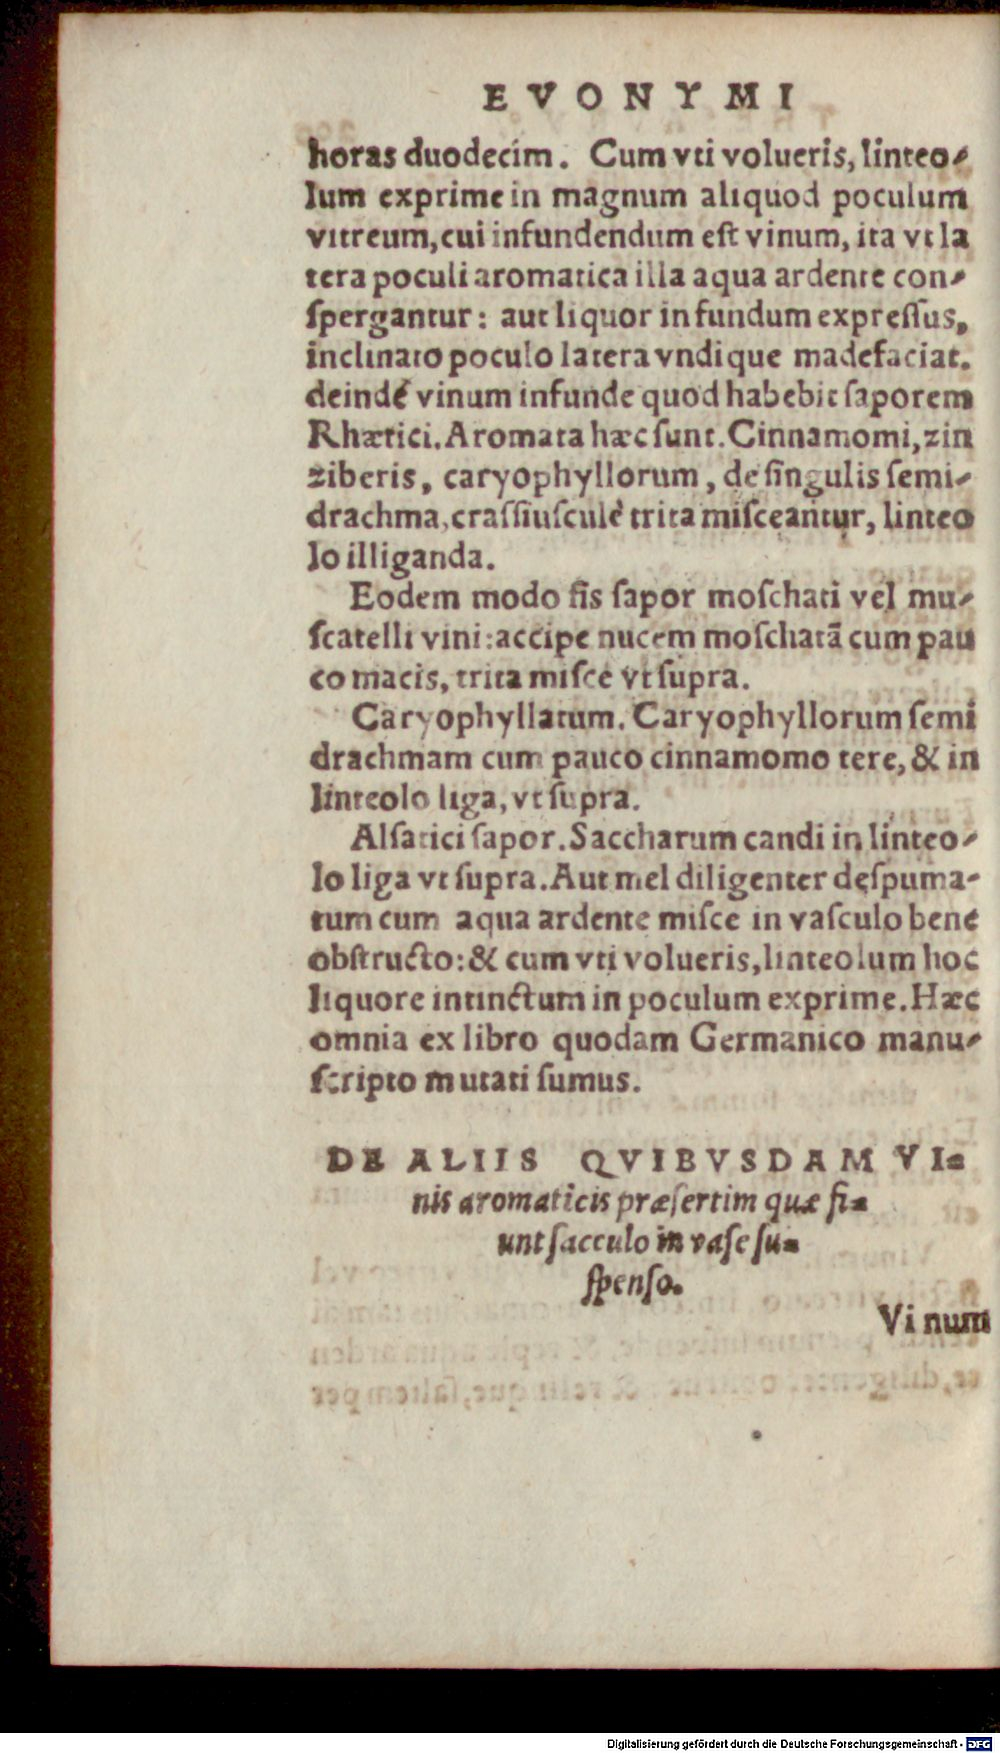 EVONYMI
horas duodecim. Cum vti volueris, linteo-
lum exprime in magnum aliquod poculum
vitreum, cui infundendum est vinum, ita vt la
tera poculi aromatica illa aqua ardente con-
spergantur: aut liquor in fundum expressus,
inclinato poculo latera vndique madefaciat.
deindé vinum infunde quod habebit saporem
Rhætici. Aromata hæc sunt. Cinnamomi, zin
ziberis, caryophyllorum, de singulis semi-
drachma, crassiusculè trita misceantur, linteo
lo illiganda.
Eodem modo fis sapor moschati vel mu-
scatelli vini: accipe nucem moschatã cum pau
co macis, trita misce vt supra.
Caryophyllatum. Caryophyllorum semi
drachmam cum pauco cinnamomo tere, & in
linteolo liga, vt supra.
Alsatici sapor. Saccharum candi in linteo-
lo liga vt supra. Aut mel diligenter despuma-
tum cum aqua ardente misce in vasculo bene
obstructo: & cum vti volueris, linteolum hoc
liquore intinctum in poculum exprime. Hæc
omnia ex libro quodam Germanico manu-
scripto mutati sumus.
DE ALIIS QVIBVSDAM VI-
nis aromaticis præsertim quæ fi-
unt sacculo in vase su-
spenso.
Vinum
Digitalisierung gefördert durch die Deutsche Forschungsgemeinschaft - DFG